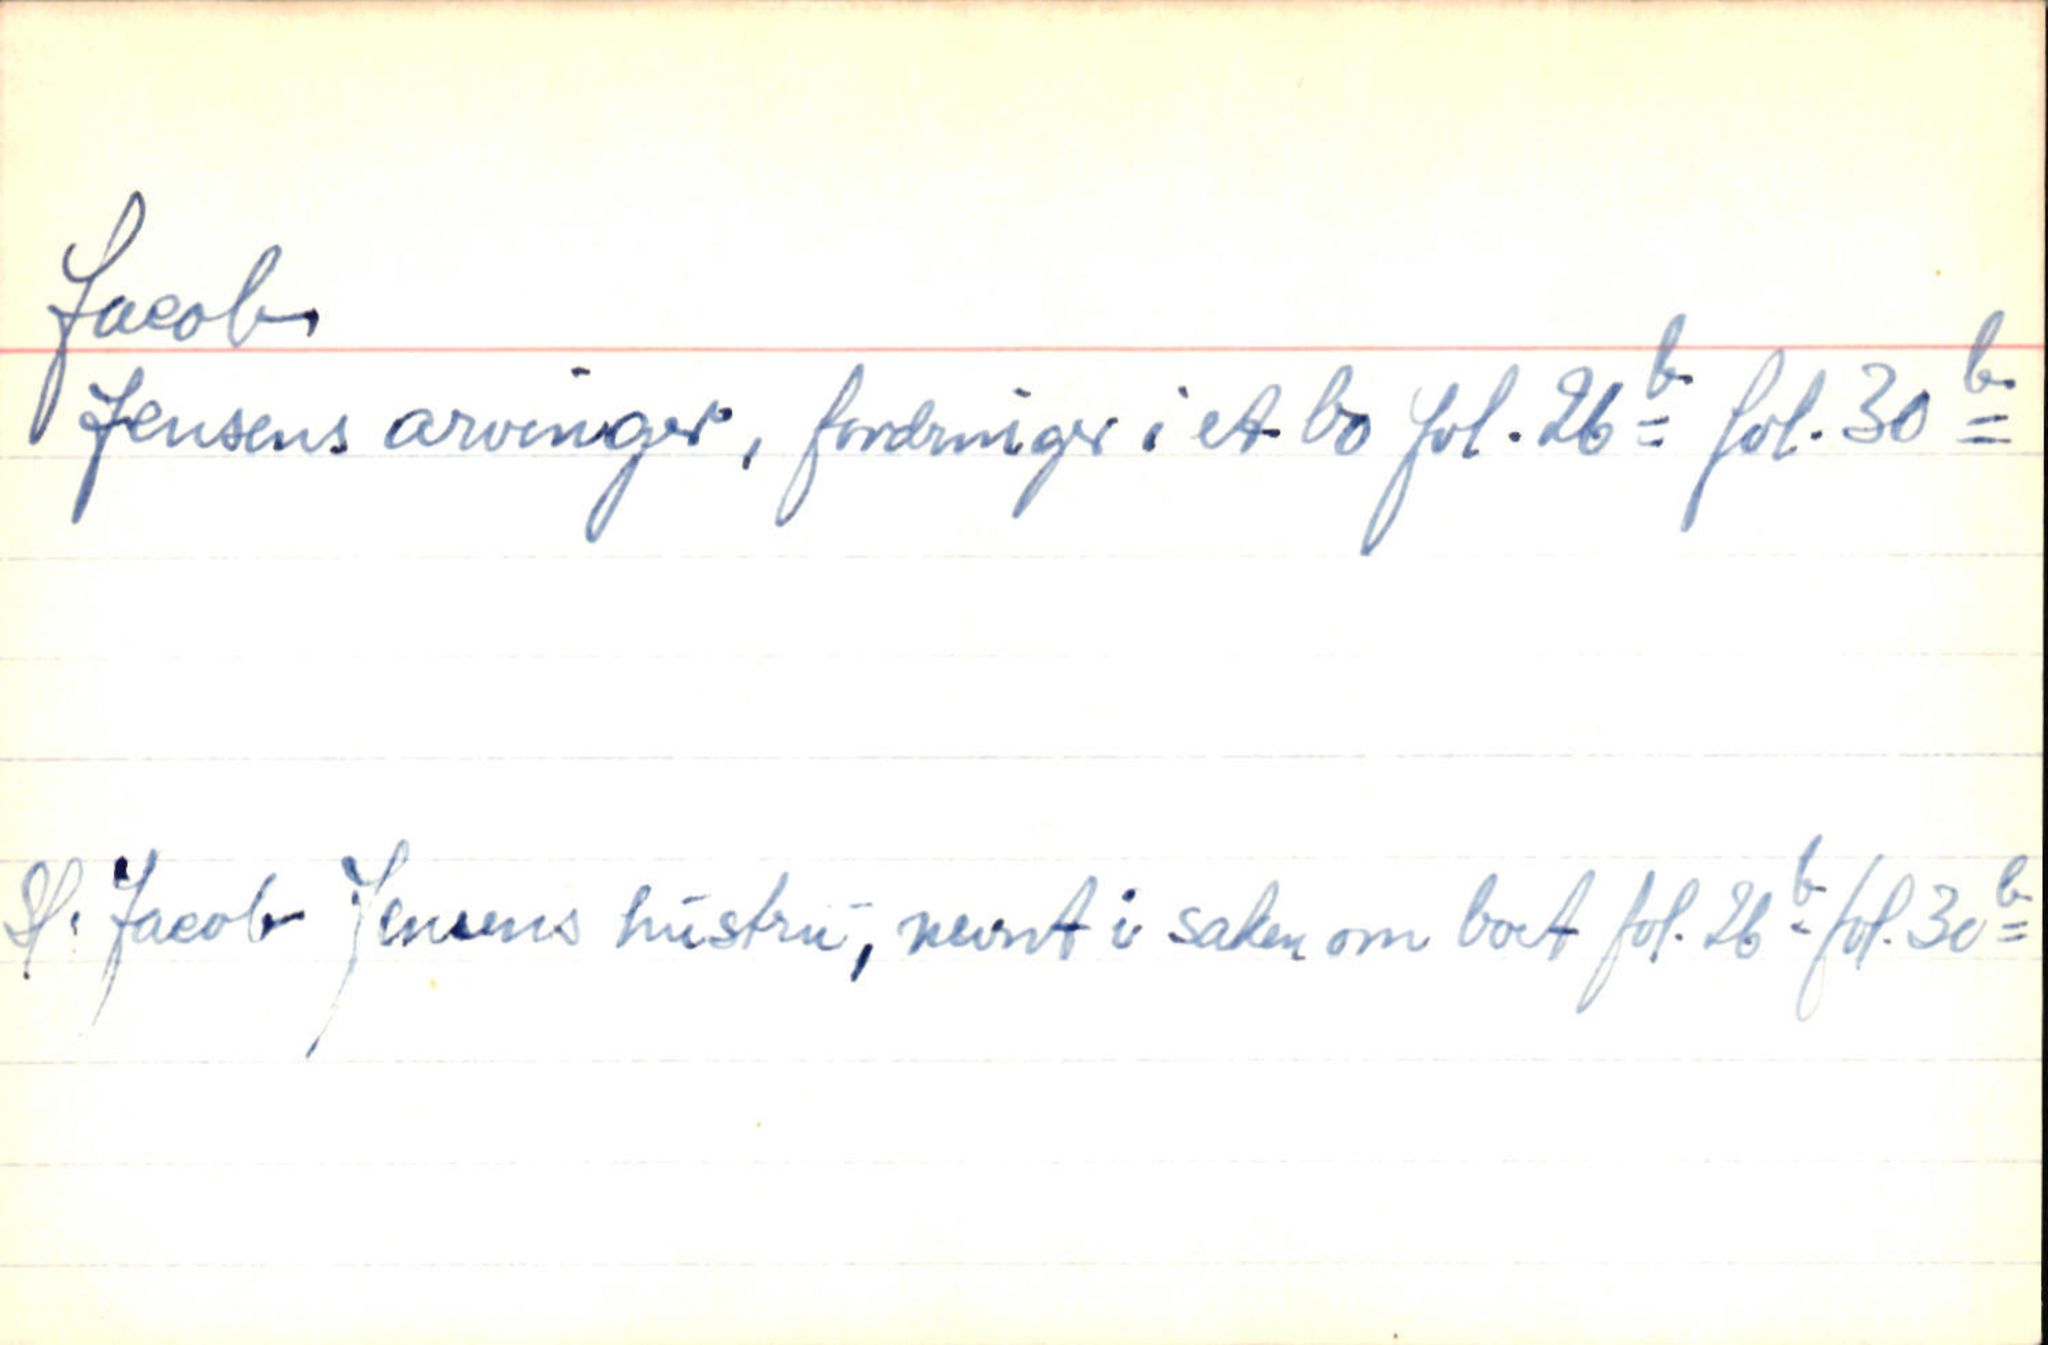 Jacob
Jensens arvinger, fordringer i et bo fol. 26b= fol. 30b=
Sl. Jacob Jensens hustru, nevnt i saken om boet fol. 26b= fol. 30b=